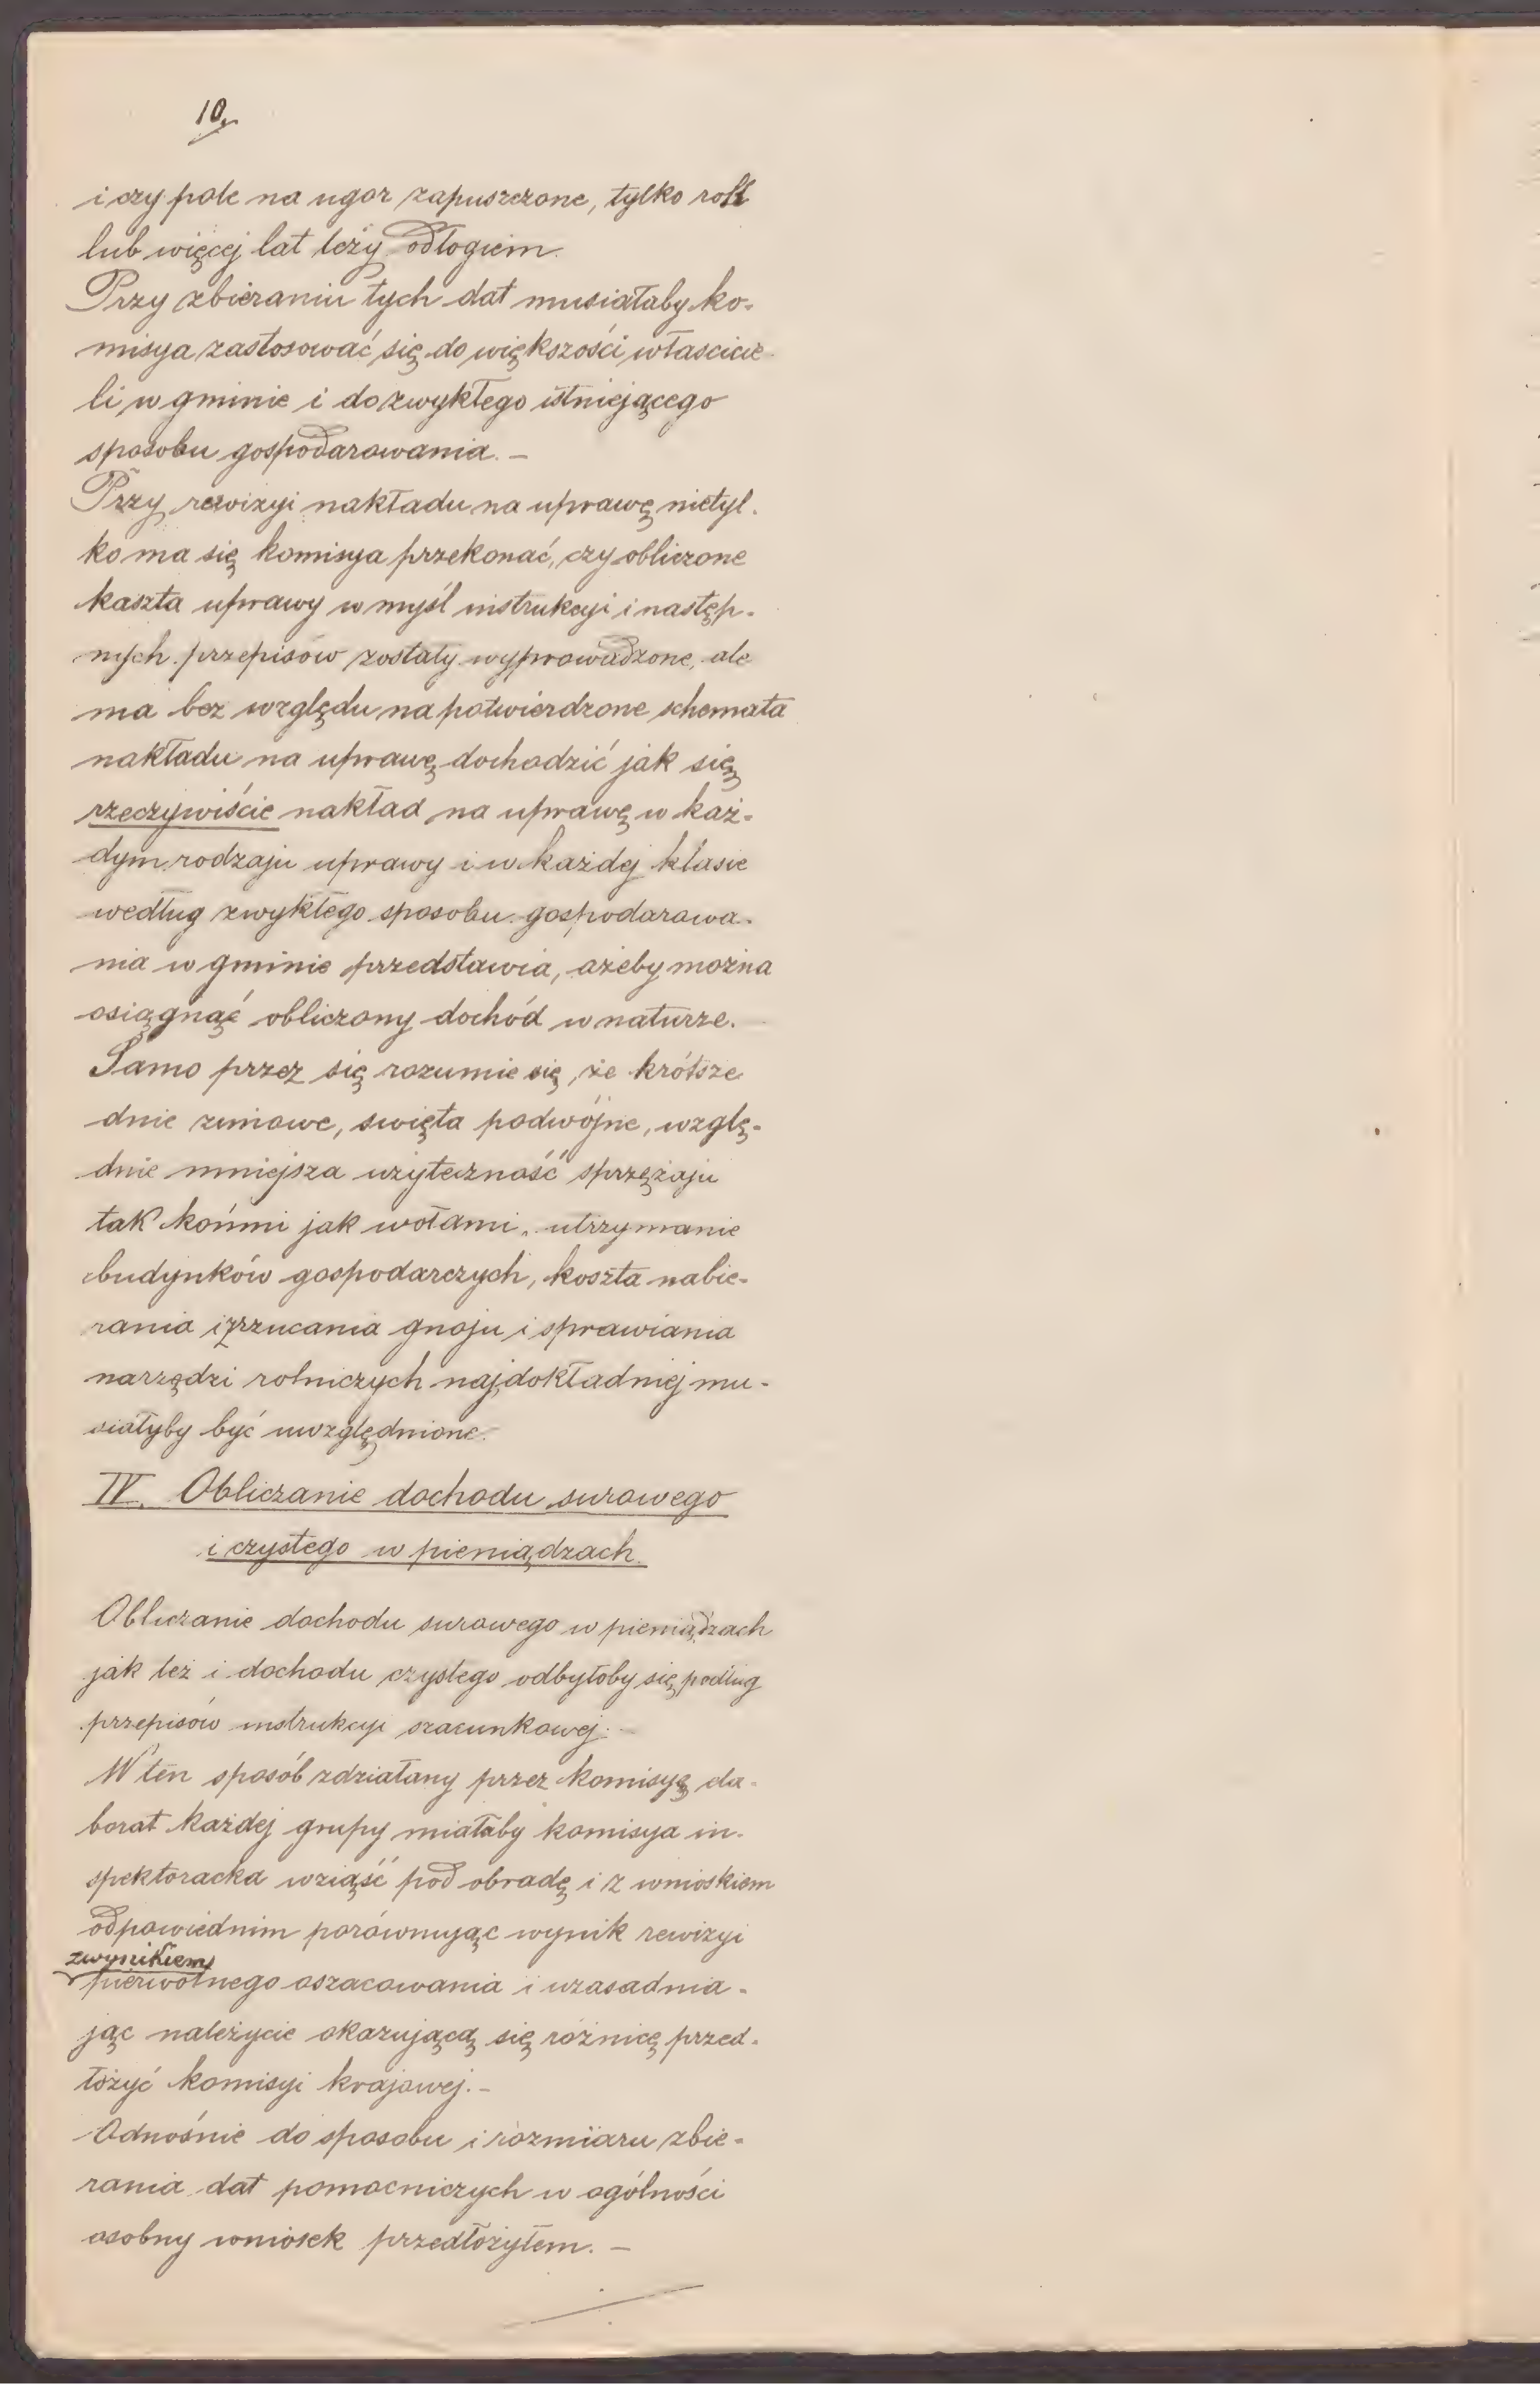 10.
i czy pole na ugor zapuszczone, tylko rok
lub więcej lat leży odłogiem.
Przy zbieraniu tych dat musiałaby ko-
misya zastosować się do większości właścicie-
li w gminie i do zwykłego istniejącego
sposobu gospodarowania. -
Przy rewizyi nakładu na uprawę nietyl-
ko ma się komisya przekonać, czy obliczone
koszta uprawy w myśl instrukcyi i następ-
nych przepisów zostały wyprowadzone, ale
ma bez względu na potwierdzone schemata
nakładu na uprawę dochodzić jak się
rzeczywiście nakład na uprawę w każ-
dym rodzaju uprawy i w każdej klasie
według zwykłego sposobu gospodarowa-
nia w gminie przedstawia, ażeby można
osiągnąć obliczony dochód w naturze.
Samo przez się rozumie się, że krótsze
dnie zimowe, święta podwójne, wzglę-
dnie mniejsza użyteczność sprzężaju
tak końmi jak wołami, utrzymanie
budynków gospodarczych, koszta nabie-
rania i zrzucania gnoju i sprawiania
narzędzi rolniczych najdokładniej mu-
siałyby być uwzględnione.
IV. Obliczanie dochodu surowego
i czystego w pieniądzach.
Obliczanie dochodu surowego w pieniądzach
jak też i dochodu czystego odbyłoby się podług
przepisów instrukcyi szacunkowej. -
W ten sposób zdziałany przez komisyę ela-
borat każdej grupy miałaby komisya in-
spektoracka wziąść pod obradę i z wnioskiem
odpowiednim porównując wynik rewizyi
z wynikiem
pierwotnego oszacowania i uzasadnia-
jąc należycie okazującą się różnicę przed-
łożyć komisyi krajowej. -
Odnośnie do sposobu i rozmiaru zbie-
rania dat pomocniczych w ogólności
osobny wniosek przedłożyłem. -